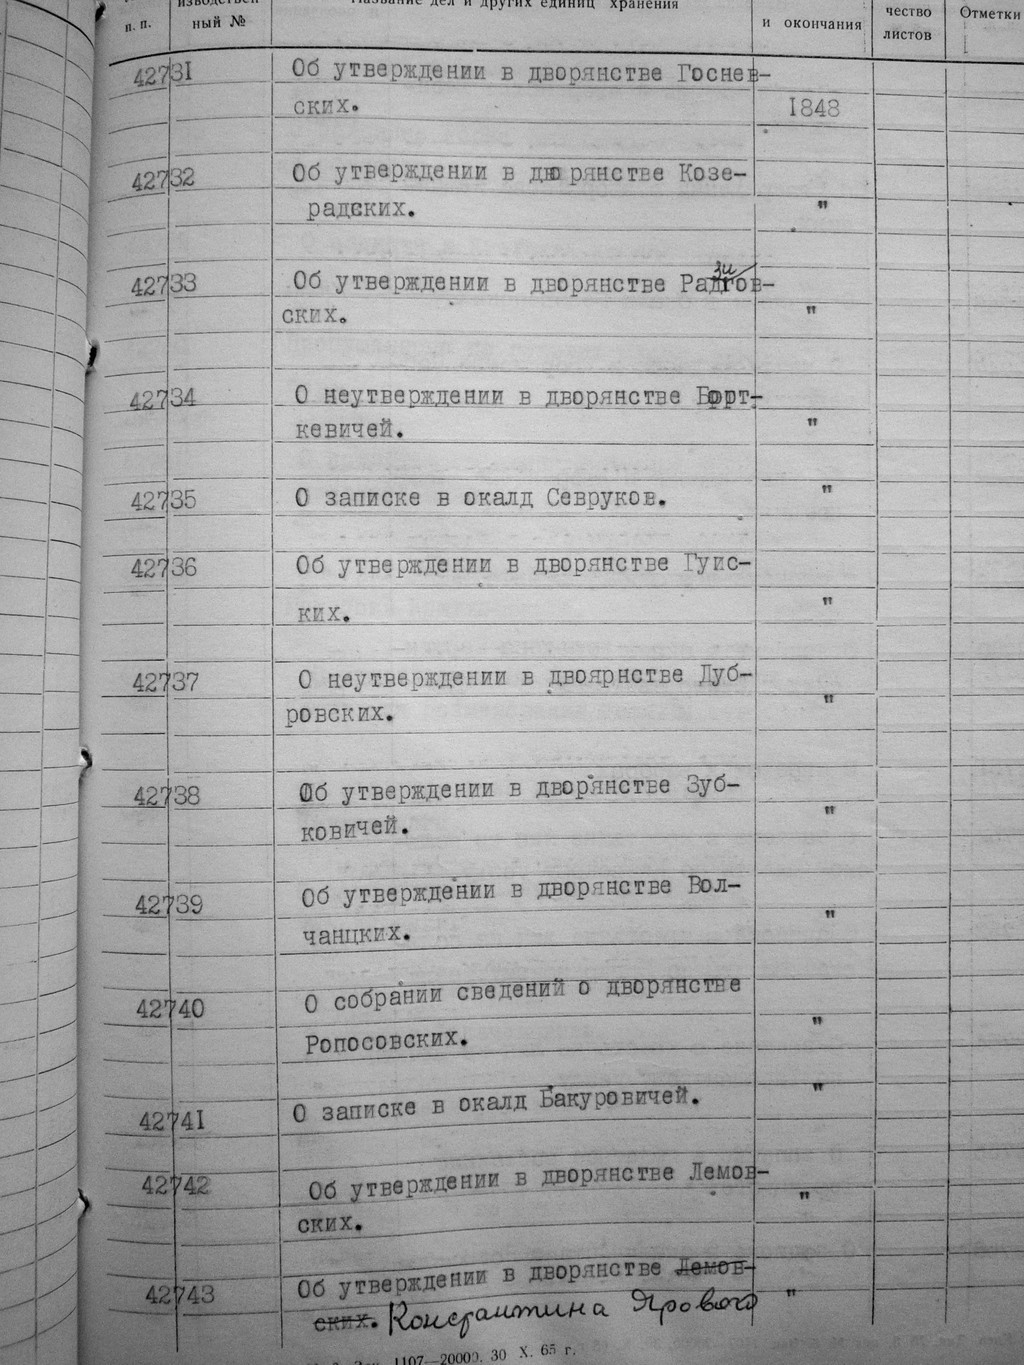 п. п.
изводствен
ный №
Название дел и других единиц хранения
и окончания
чество
листов
Отметки
42731 Об утверждении в дворянстве Госнев-
ских. 1848
42732 Об утверждении в дворянстве Козе-
радских. "
42733 Об утверждении в дворянстве Радзиов-
ских. "
42734 О неутверждении в дворянстве Борт-
кевичей. "
42735 О записке в окалд Севруков. "
42736 Об утверждении в дворянстве Гуис-
ких. "
42737 О неутверждении в двоярнстве Дуб-
ровских. "
42738 Об утверждении в дворянстве Зуб-
ковичей. "
42739 Об утверждении в дворянстве Вол-
чанцких. "
42740 О собрании сведений о дворянстве
Ропосовских. "
42741 О записке в окалд Бакуровичей. "
42742 Об утверждении в дворянстве Лемов-
ских. "
42743 Об утверждении в дворянстве Лемов-
ских. Константина Ярового "
1107—20000. 30 X. 65 г.